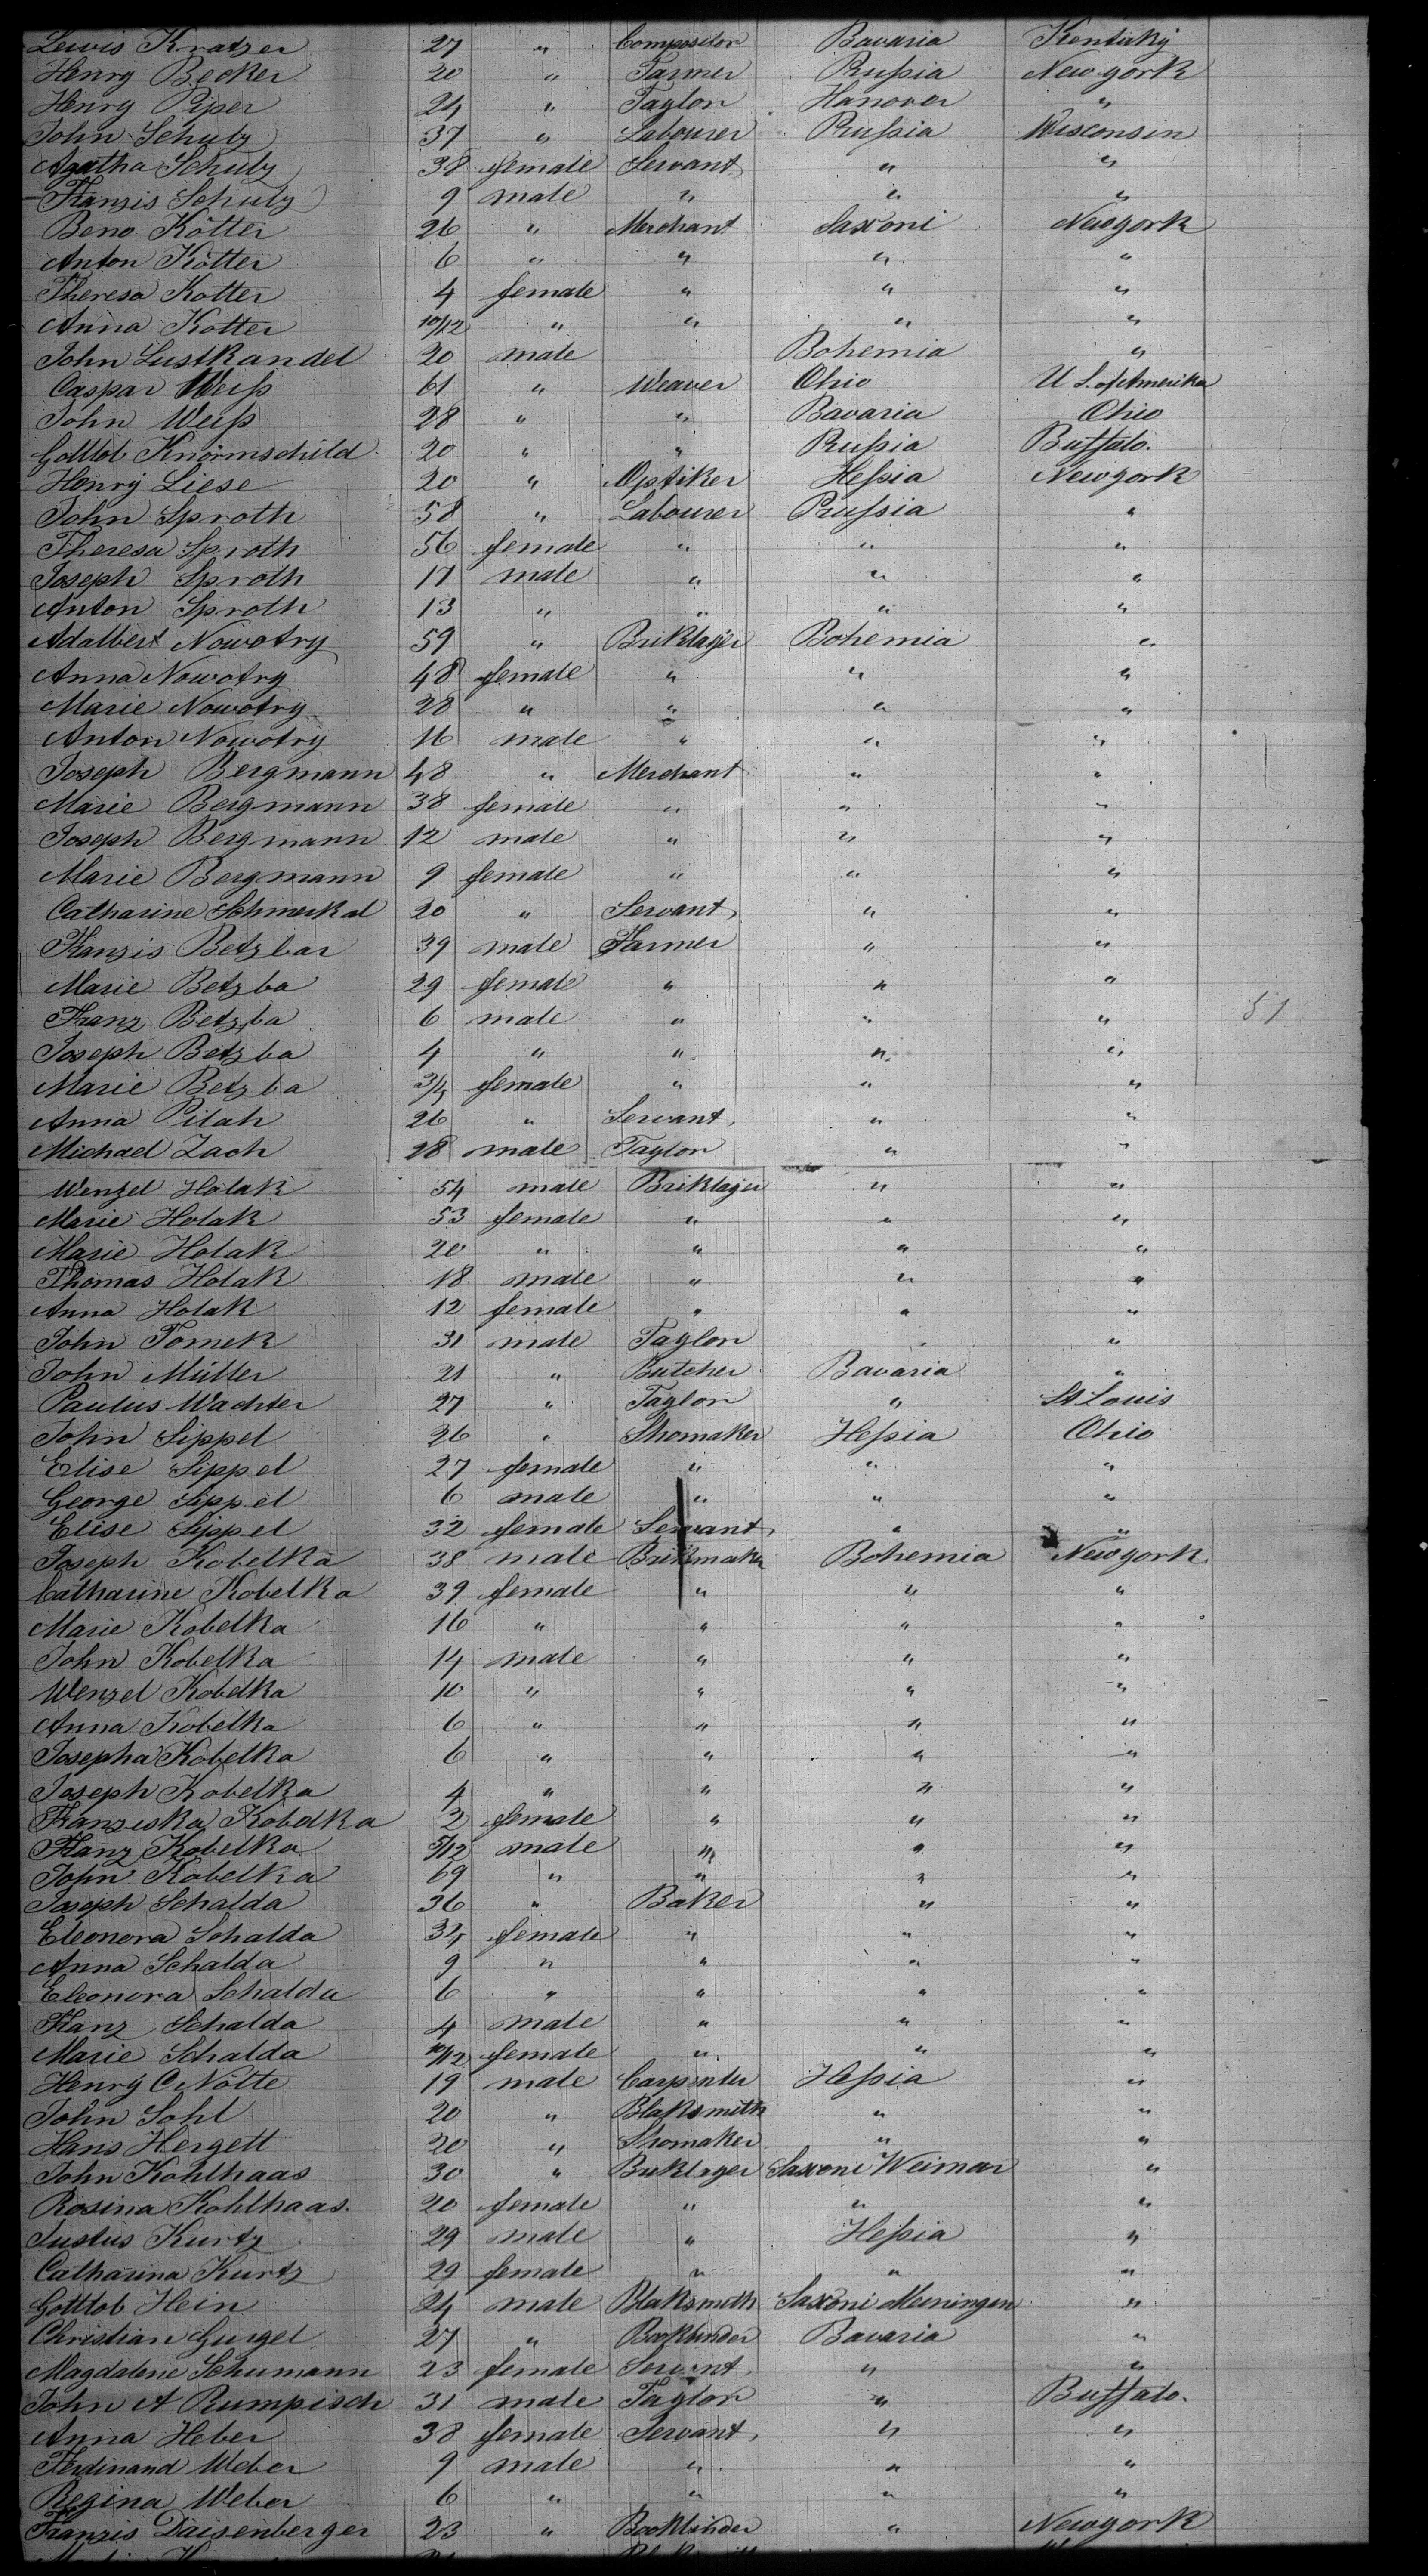 Lewis Kratzer 27 " Compositor Bavaria Kentuky
Henry Becker 20 " Farmer Prussia New-york
Henry Piper 24 " Taylor Hanover "
John Schulz 37 " Labourer Prussia Wisconsin
Agatha Schulz 38 female Servant " "
Franzis Schulz 9 male " " "
Beno Kötter 26 " Merchant Saxoni Newyork
Anton Kötter 6 " " " "
Theresa Kotter 4 female " " "
Anna Kotter 10/12 " " " "
John Lustkandel 20 male Bohemia "
Caspar Weiss 61 " Weaver Ohio U S. of Amerika
John Weiss 28 " " Bavaria Ohio
Gottlob Knörmschild 20 " " Prussia Buffalo.
Henry Liese 20 " Optiker Hessia Newyork
John Sproth 58 " Labourer Prussia "
Theresa Sproth 56 female " " "
Joseph Sproth 17 male " " "
Anton Sproth 13 " " " "
Adalbert Nowotry 59 " Briklayer Bohemia "
Anna Nowotry 48 female " " "
Marie Nowotry 28 " " " "
Anton Nowotry 16 male " " "
Joseph Bergmann 48 " Merchant " "
Marie Bergmann 38 female " " "
Joseph Bergmann 12 male " " "
Marie Bergmann 9 female " " "
Catharine Schmerkal 20 " Servant " "
Franzis Betzbar 39 male Farmer " "
Marie Betzba 29 female " " "
Franz Betzba 6 male " " " 51
Joseph Betzba 4 " " " "
Marie Betzba female " " "
Anna Pilah 26 " Servant " "
Michael Zach 28 male Taylor " "
Wenzel Holak 54 male Briklayer " "
Marie Holak 53 female " " "
Marie Holak 20 " " " "
Thomas Holak 18 male " " "
Anna Holak 12 female " " "
John Tomek 31 male Taylor " "
John Müller 21 " Butcher Bavaria "
Paulus Wachter 27 " Taylor " St Louis
John Sippel 26 " Shomaker Hessia Ohio
Elise Sippel 27 female " " "
George Sippel 6 male " " "
Elise Sippel 32 female Servant " "
Joseph Kobelka 38 male Brikmaker Bohemia Newyork
Catharine Kobelka 39 female " " "
Marie Kobelka 16 " " " "
John Kobelka 14 male " " "
Wenzel Kobelka 10 " " " "
Anna Kobelka 6 " " " "
Josepha Kobelka 6 " " " "
Joseph Kobelka 4 " " " "
Franziska Kobelka 2 female " " "
Franz Kobelka 5/12 male " " "
John Kobelka 69 " " " "
Joseph Schalda 36 " Baker " "
Eleonora Schalda female " " "
Anna Schalda 9 " " " "
Eleonora Schalda 6 " " " "
Franz Schalda 4 male " " "
Marie Schalda 10/12 female " " "
Henry C Nolte 19 male Carpenter Hessia "
John Sohl 20 " Blaksmith " "
Hans Hergett 20 " Shomaker " "
John Kohlhaas 30 " Briklayer Saxoni Weimar "
Rosina Kohlhaas. 20 female " " "
Justus Kurtz 29 male " Hessia "
Catharina Kurtz 29 female " " "
Gottlob Hein 24 male Blaksmith Saxoni Meiningen "
Christian Gurgel 27 " Bookbinder Bavaria "
Magdalene Schumann 23 female Servant " "
John A Rumpisch 31 male Taylor " Buffalo.
Anna Heber 38 female Servant " "
Ferdinand Weber 9 male " " "
Regina Weber 6 " " " "
Franzis Daisenberger 23 " Bookbinder " Newyork